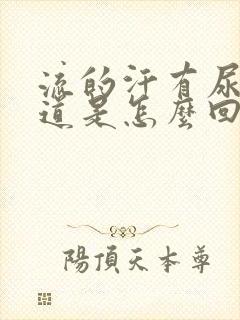 流的汗有尿
道是怎麼回
陽頂天本尊